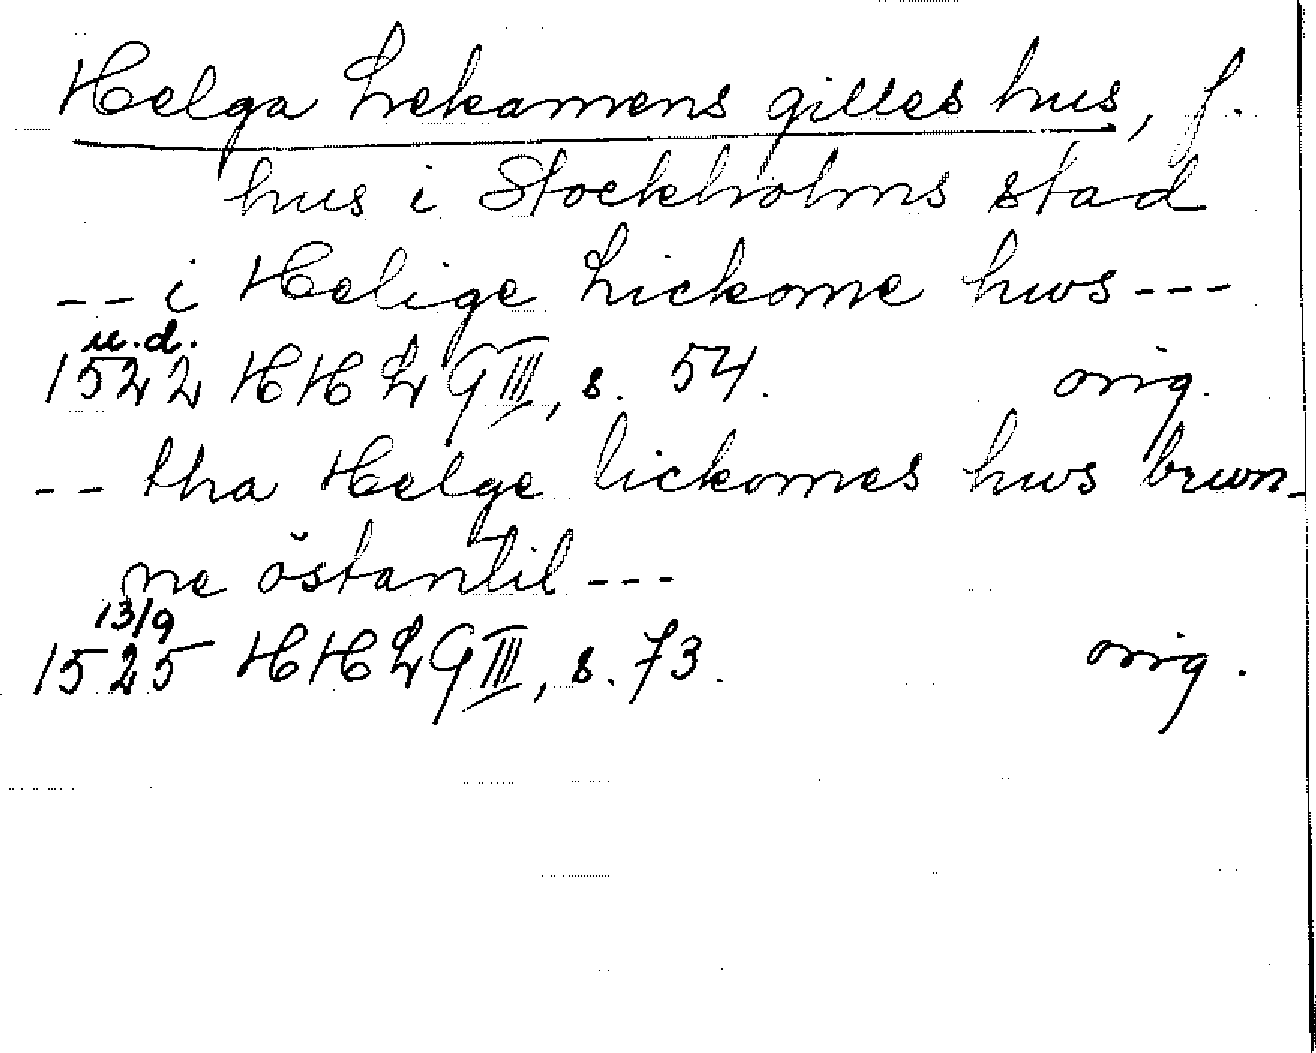 Helga Lekamens gilles hus, f.
hus i Stockholms stad
-- i Helige Lickome hws ---
u.d.
1522 HHLG III, s. 54. orig.
-- tha Helge lickomes hws brwn-
ne östantil ---
13/9
1525 HHLG III, s. 73. orig.